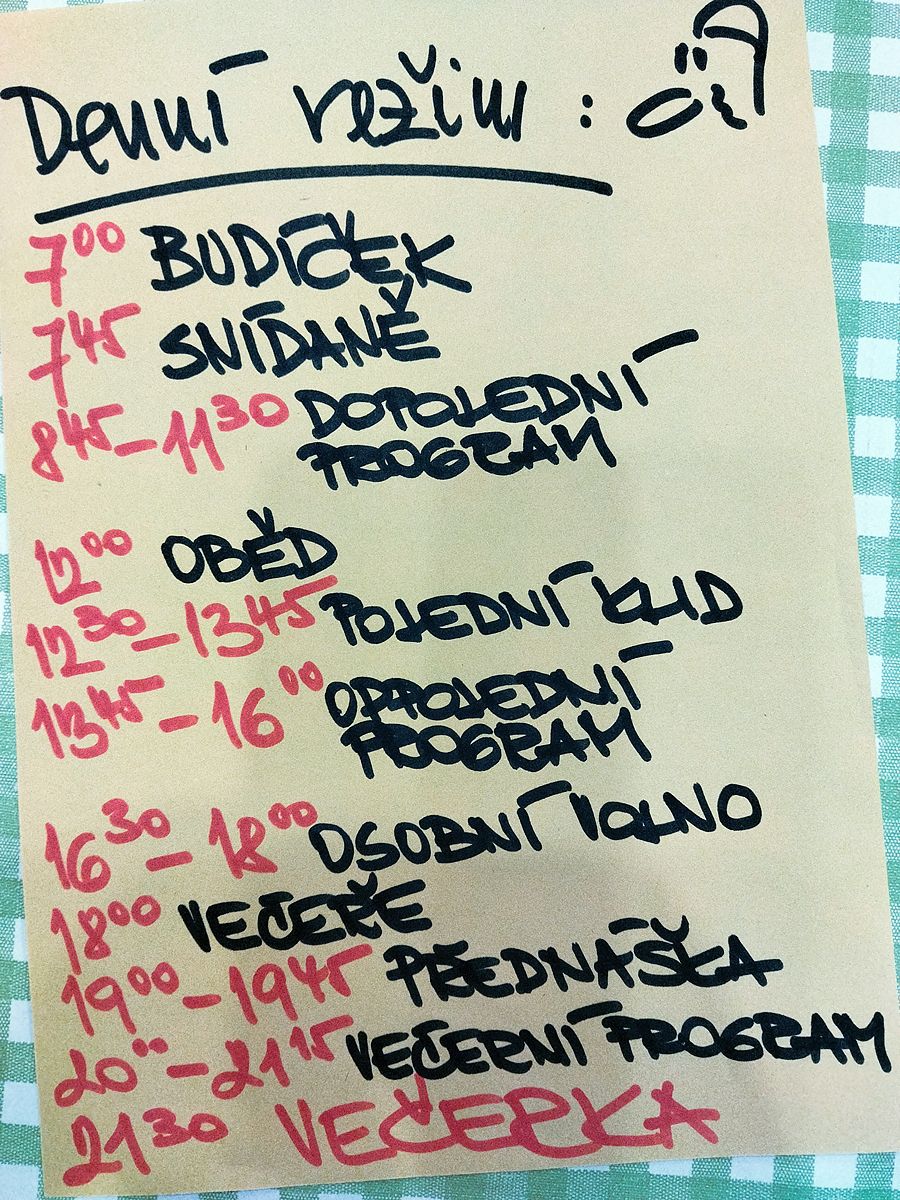 Denní režim :
7⁰⁰ BUDÍČEK
7⁴⁵ SNÍDANĚ
8⁴⁵ – 11³⁰ DOPOLEDNÍ
PROGRAM
12⁰⁰ OBĚD
12³⁰ – 13⁴⁵ POLEDNÍ KLID
13⁴⁵ – 16⁰⁰ ODPOLEDNÍ
PROGRAM
16³⁰ – 18⁰⁰ OSOBNÍ VOLNO
18⁰⁰ VEČEŘE
19⁰⁰ – 19⁴⁵ PŘEDNÁŠKA
20⁰⁰ – 21¹⁵ VEČERNÍ PROGRAM
21³⁰ VEČERKA